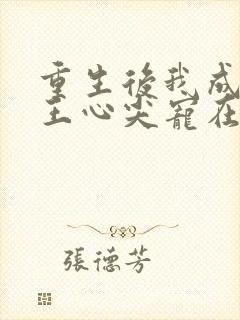 重生後我成
王心尖寵在
張德芳